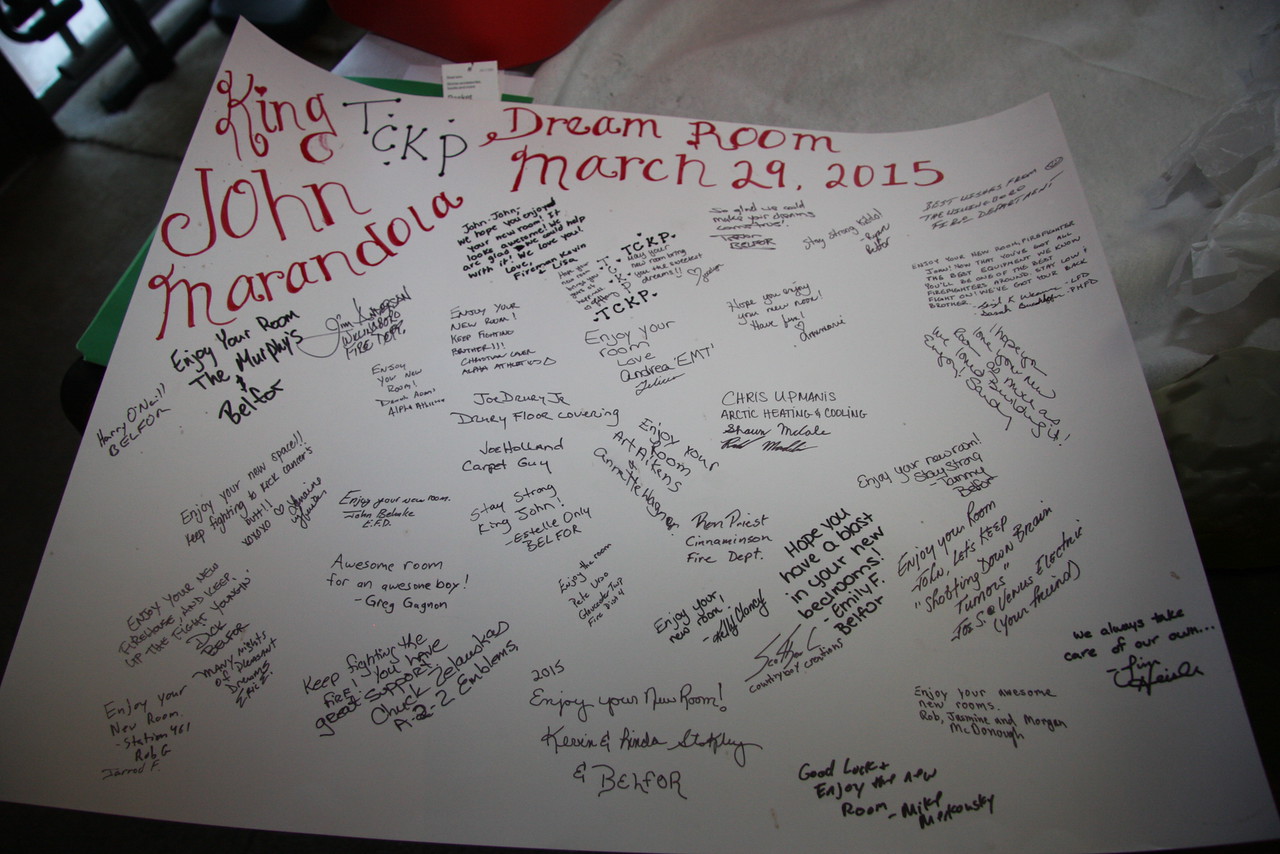 King
John
Marandola
TCKP
Dream Room
March 29, 2015
John-John,
We hope you enjoyed
your new room! It
looks awesome! We
are glad we could help
with it! We love you!
Love,
Fireman Kevin
Lisa
So glad we could
make your dreams
come true!
BELFOR
Stay strong Kiddo!
- Ryan
Belfor
BEST WISHES FROM
THE WILLINGBORO
FIRE DEPARTMENT!
TCKP
May your
new room bring
you the sweetest
dreams!!
TCKP
TCKP
ENJOY YOUR NEW ROOM, FIREFIGHTER
JOHN! NOW THAT YOU'VE GOT ALL
THE BEST EQUIPMENT WE KNOW
YOU'LL BE ONE OF THE BEST
FIREFIGHTERS AROUND. STAY LOW &
FIGHT ON! WE'VE GOT YOUR BACK
BROTHER.
Enjoy Your Room
The Murphy's
&
Belfor
Jim Anderson
Willingboro
Fire Dept.
ENJOY YOUR
NEW ROOM!
KEEP FIGHTING
BROTHER!!!
CHRISTIAN
ALPHA ATHLETICS
Enjoy your
room
Love
Andrea 'EMT'
Hope you enjoy
your new room!
Have fun!
annmarie
hope you
love your new
room as much as
we loved Building it!
Enjoy! Sandy
Harry O'Neill
BELFOR
ENJOY
YOU NEW
ROOM!
Joe Drury Jr
Drury Floor covering
Joe Holland
Carpet Guy
CHRIS UPMANIS
ARCTIC HEATING & COOLING
Shawn McCole
Enjoy your
Room
Art Aikens
&
Annette Wagner
Enjoy your new room!
Stay Strong
- Tammy
Belfor
Enjoy your new space!!
Keep fighting to kick cancer's
butt!!
xoxoxo
Enjoy your new room.
John
E.F.D.
Stay Strong
King John!
- Estelle Only
BELFOR
Ron Priest
Cinnaminson
Fire Dept.
Hope you
have a blast
in your new
bedrooms!
- Emily F.
Belfor
Enjoy your Room
John, Let's KEEP
"Shotting Down Brain
Tumors"
Jos S. @ Venus Electric
(Your friend)
Awesome room
for an awesome boy!
- Greg Gagnon
Enjoy the room
Pete
Gloucester Twp
Fire Dist 4
Enjoy your
new room,
- Kelly Clancy
countryboy creations
we always take
care of our own...
ENJOY YOUR NEW
FIREHOUSE, AND KEEP
UP THE FIGHT YOUNGIN'
DICK
BELFOR
MANY nights
of Pleasant
Dreams
Eric
Enjoy your
New Room.
- Station 461
Rob G
Jarrod F.
Keep fighting the
FIRE! you have
great support
Chuck Zelauskas
A-2-Z Emblems,
2015
Enjoy your New Room!
Kevin & Linda Stokley
& BELFOR
Enjoy your awesome
new rooms.
Rob, Jasmine and Morgan
McDonough
Good Luck &
Enjoy the new
Room - Mike
Merkowsky